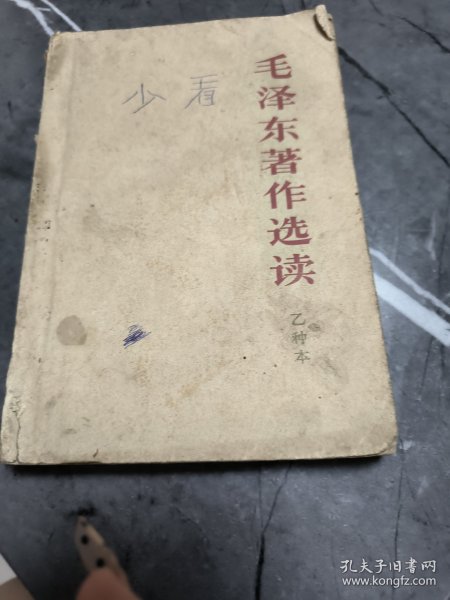 毛泽东著作选读
乙种本
少看
孔夫子旧书网
www.kongfz.com